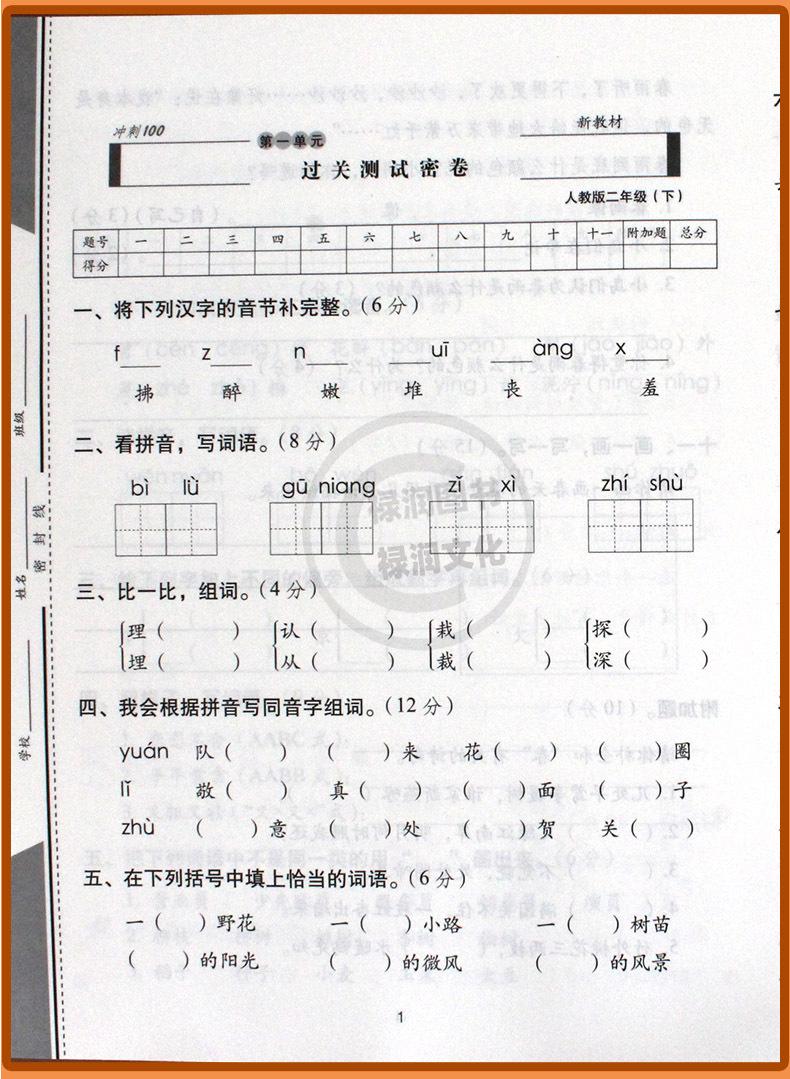 冲刺100
新教材
第一单元
过关测试密卷
人教版二年级（下）
题号 一 二 三 四 五 六 七 八 九 十 十一 附加题 总分
得分
一、将下列汉字的音节补完整。（6 分）
f____ z____ ____n ____uī ____àng x____
拂 醉 嫩 堆 丧 羞
二、看拼音，写词语。（8 分）
bì lǜ gū niang zǐ xì zhí shù
三、比一比，组词。（4 分）
理（ ） 认（ ） 栽（ ） 探（ ）
埋（ ） 从（ ） 裁（ ） 深（ ）
四、我会根据拼音写同音字组词。（12 分）
yuán 队（ ） （ ）来 花（ ） （ ）圈
lǐ 敬（ ） 真（ ） （ ）面 （ ）子
zhù （ ）意 （ ）处 （ ）贺 关（ ）
五、在下列括号中填上恰当的词语。（6 分）
一（ ）野花 一（ ）小路 一（ ）树苗
（ ）的阳光 （ ）的微风 （ ）的风景
1
学校
姓名
班级
密封线
禄润图书
禄润文化